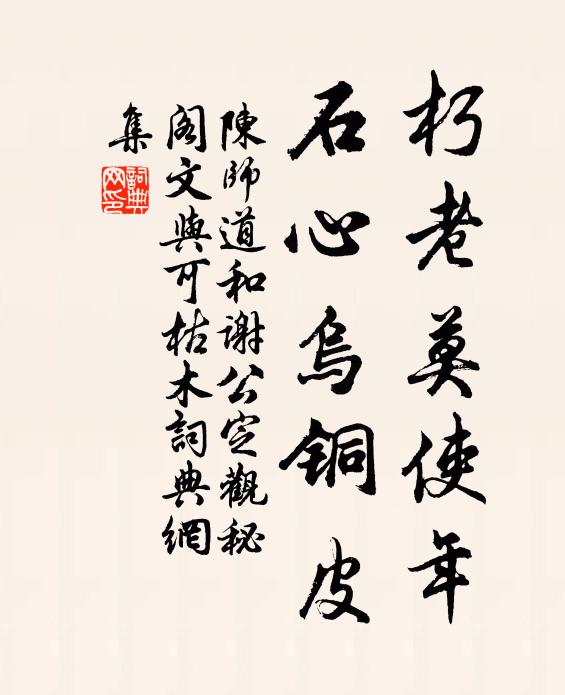 朽老莫使年
石心烏銅皮
陳師道和謝公定觀秘
閣文與可枯木詞典網
集
詞典網印